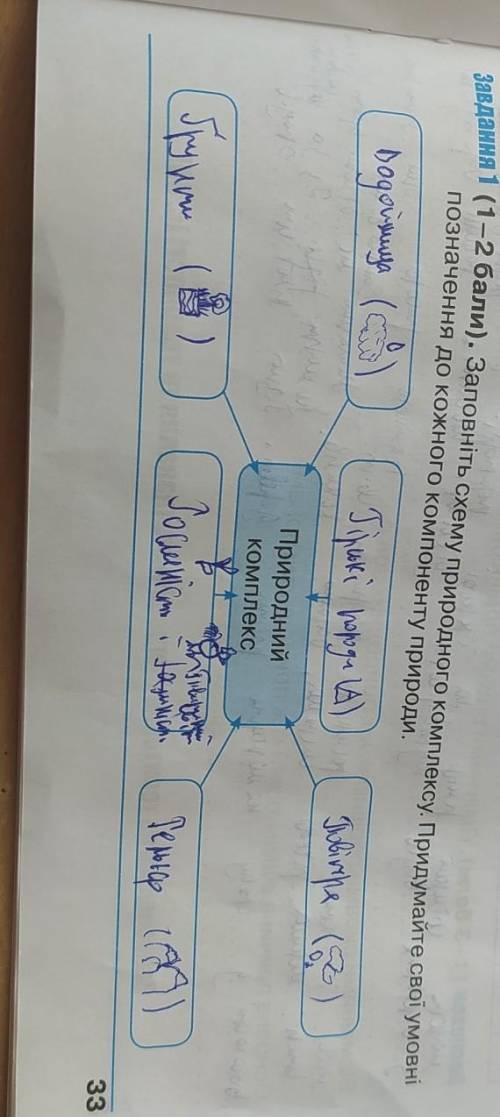 Завдання 1 (1–2 бали). Заповніть схему природного комплексу. Придумайте свої умовні
позначення до кожного компоненту природи.
Водоймища ( )
Гірські породи ( )
Повітря ( O₂ )
Природний
комплекс
Ґрунти ( )
Рослинність і
тваринний
Рельєф ( )
33